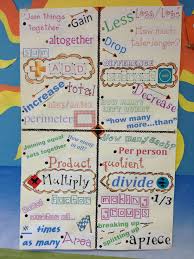 "Join Things
Together"
Gain
altogether
sum
ADD
increase
Total
perimeter
how many...
Less
Loss/Lose
How much
taller/longer?
Drop
difference
Decrease
how many
more...than?
Joining equal
sets together
Product
Multiply
times
as many
Area
How many each?
Per person
quotient
divide
making
groups
1/3
breaking up
splitting up
apiece